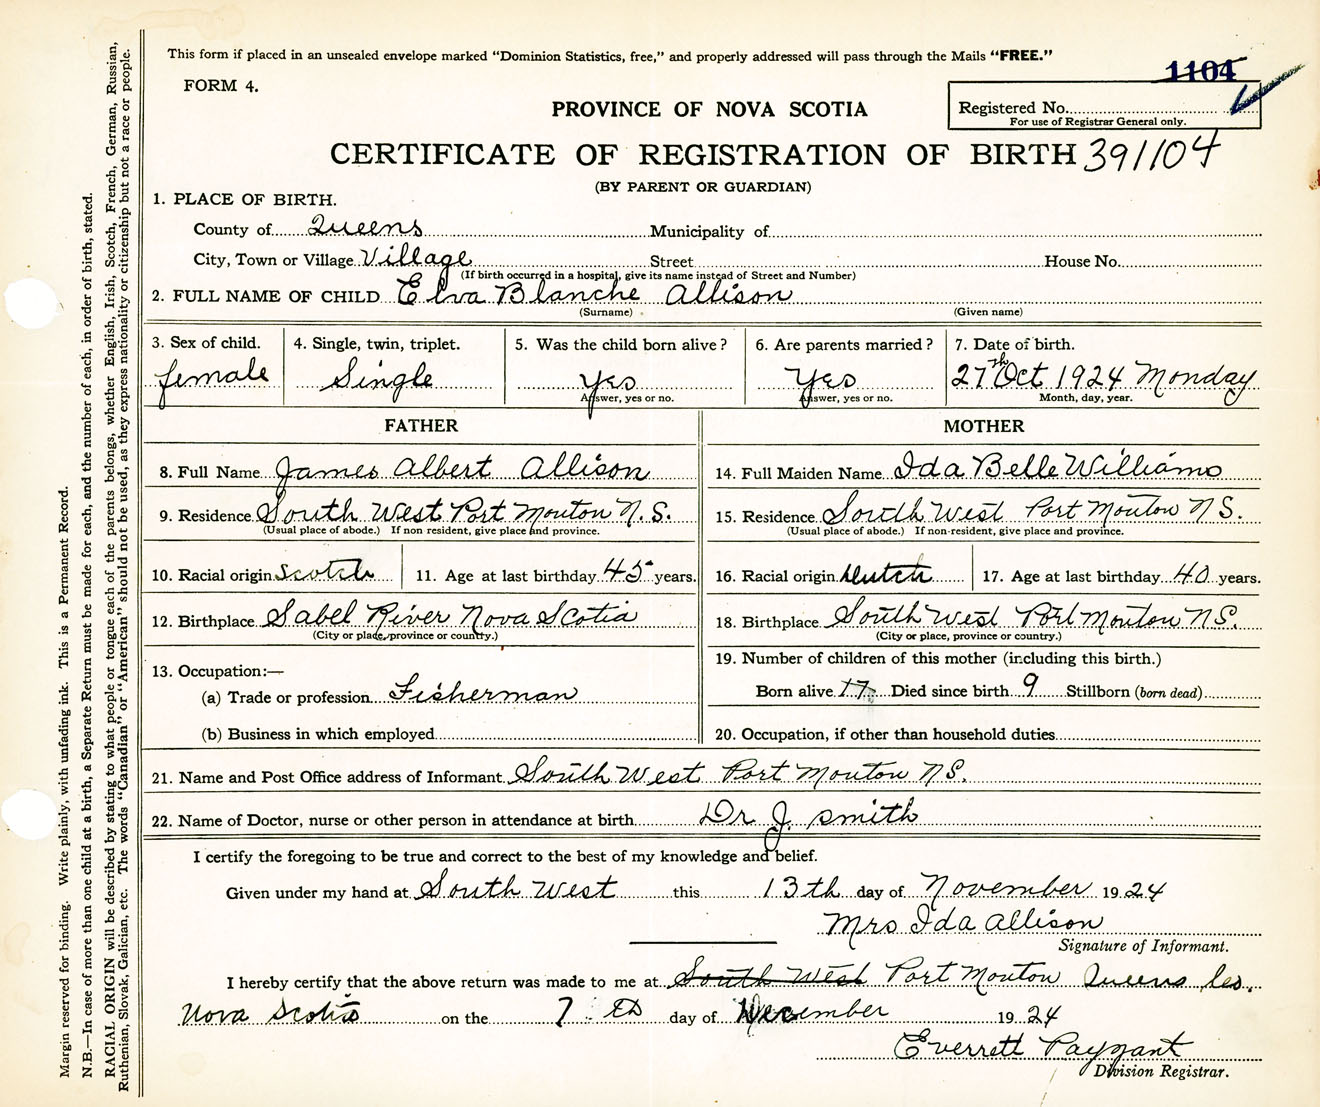 This form if placed in an unsealed envelope marked "Dominion Statistics, free," and properly addressed will pass through the Mails "FREE."
1104
FORM 4.
PROVINCE OF NOVA SCOTIA
Registered No.
For use of Registrar General only.
CERTIFICATE OF REGISTRATION OF BIRTH 391104
(BY PARENT OR GUARDIAN)
1. PLACE OF BIRTH.
County of Queens Municipality of
City, Town or Village Village Street House No.
(If birth occurred in a hospital, give its name instead of Street and Number)
2. FULL NAME OF CHILD Elva Blanche Allison
(Surname) (Given name)
3. Sex of child. 4. Single, twin, triplet. 5. Was the child born alive? 6. Are parents married? 7. Date of birth.
female Single Yes Yes 27th Oct 1924 Monday
Answer, yes or no. Answer, yes or no. Month, day, year.
FATHER MOTHER
8. Full Name James Albert Allison 14. Full Maiden Name Ida Belle Williams
9. Residence South West Port Mouton N.S. 15. Residence South West Port Mouton N S.
(Usual place of abode.) If non resident, give place and province. (Usual place of abode.) If non-resident, give place and province.
10. Racial origin Scotch 11. Age at last birthday 45 years. 16. Racial origin Dutch 17. Age at last birthday 40 years.
12. Birthplace Sabel River Nova Scotia 18. Birthplace South West Port Mouton N S.
(City or place, province or country.) (City or place, province or country.)
13. Occupation:— 19. Number of children of this mother (including this birth.)
(a) Trade or profession Fisherman Born alive 17 Died since birth 9 Stillborn (born dead)
(b) Business in which employed 20. Occupation, if other than household duties
21. Name and Post Office address of Informant South West Port Mouton NS.
22. Name of Doctor, nurse or other person in attendance at birth Dr J. Smith
I certify the foregoing to be true and correct to the best of my knowledge and belief.
Given under my hand at South West this 13th day of November 1924
Mrs Ida Allison
Signature of Informant.
I hereby certify that the above return was made to me at South West Port Mouton Queens Co.
Nova Scotia on the 7 th day of December 1924
Everrett Payzant
Division Registrar.
Margin reserved for binding. Write plainly, with unfading ink. This is a Permanent Record.
N.B.—In case of more than one child at a birth, a Separate Return must be made for each, and the number of each, in order of birth, stated.
RACIAL ORIGIN will be described by stating to what people or tongue each of the parents belongs, whether English, Irish, Scotch, French, German, Russian,
Ruthenian, Slovak, Galician, etc. The words "Canadian" or "American" should not be used, as they express nationality or citizenship but not a race or people.